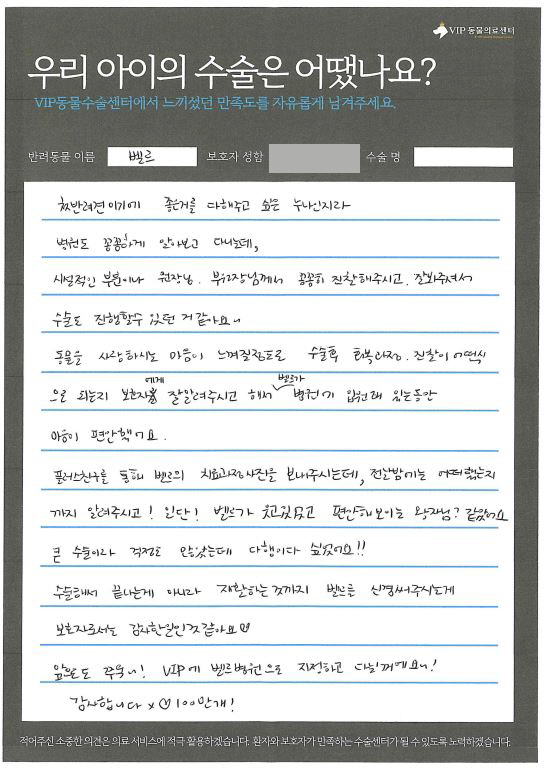 VIP 동물의료센터
우리 아이의 수술은 어땠나요?
VIP동물수술센터에서 느끼셨던 만족도를 자유롭게 남겨주세요.
반려동물 이름 벨르 보호자 성함 수술 명
첫반려견이기에 좋은거를 다해주고 싶은 누나인지라
병원도 꼼꼼하게 알아보고 다니는데,
시설적인 부분이나 원장님. 부원장님께서 꼼꼼히 진찰해주시고. 잘봐주셔서
수술도 진행할수 있던 거 같아요~
동물을 사랑하시는 마음이 느껴질정도로 수술후 회복과정. 진찰이 어떤식
으로 되는지 보호자에게 잘알려주시고 해서 벨르가 병원가 입원해 있는동안
마음이 편안했어요.
플러스친구를 통해 벨르의 치료과정사진을 보내주시는데, 전날밤에는 어떠했는지
까지 알려주시고! 일단! 벨르가 웃고있었고 편안해보이는 왕자님? 같았어요
큰 수술이라 걱정도 많았는데 다행이다 싶었어요!!
수술해서 끝나는게 아니라 재활하는것까지 벨르를 신경써주시는게
보호자로서는 감사한일인것같아요♡
앞으로도 쭈욱~! VIP에 벨르병원으로 지정하고 다닐꺼에요~!
감사합니다 x ♡100만개!
적어주신 소중한 의견은 의료 서비스에 적극 활용하겠습니다. 환자와 보호자가 만족하는 수술센터가 될 수 있도록 노력하겠습니다.